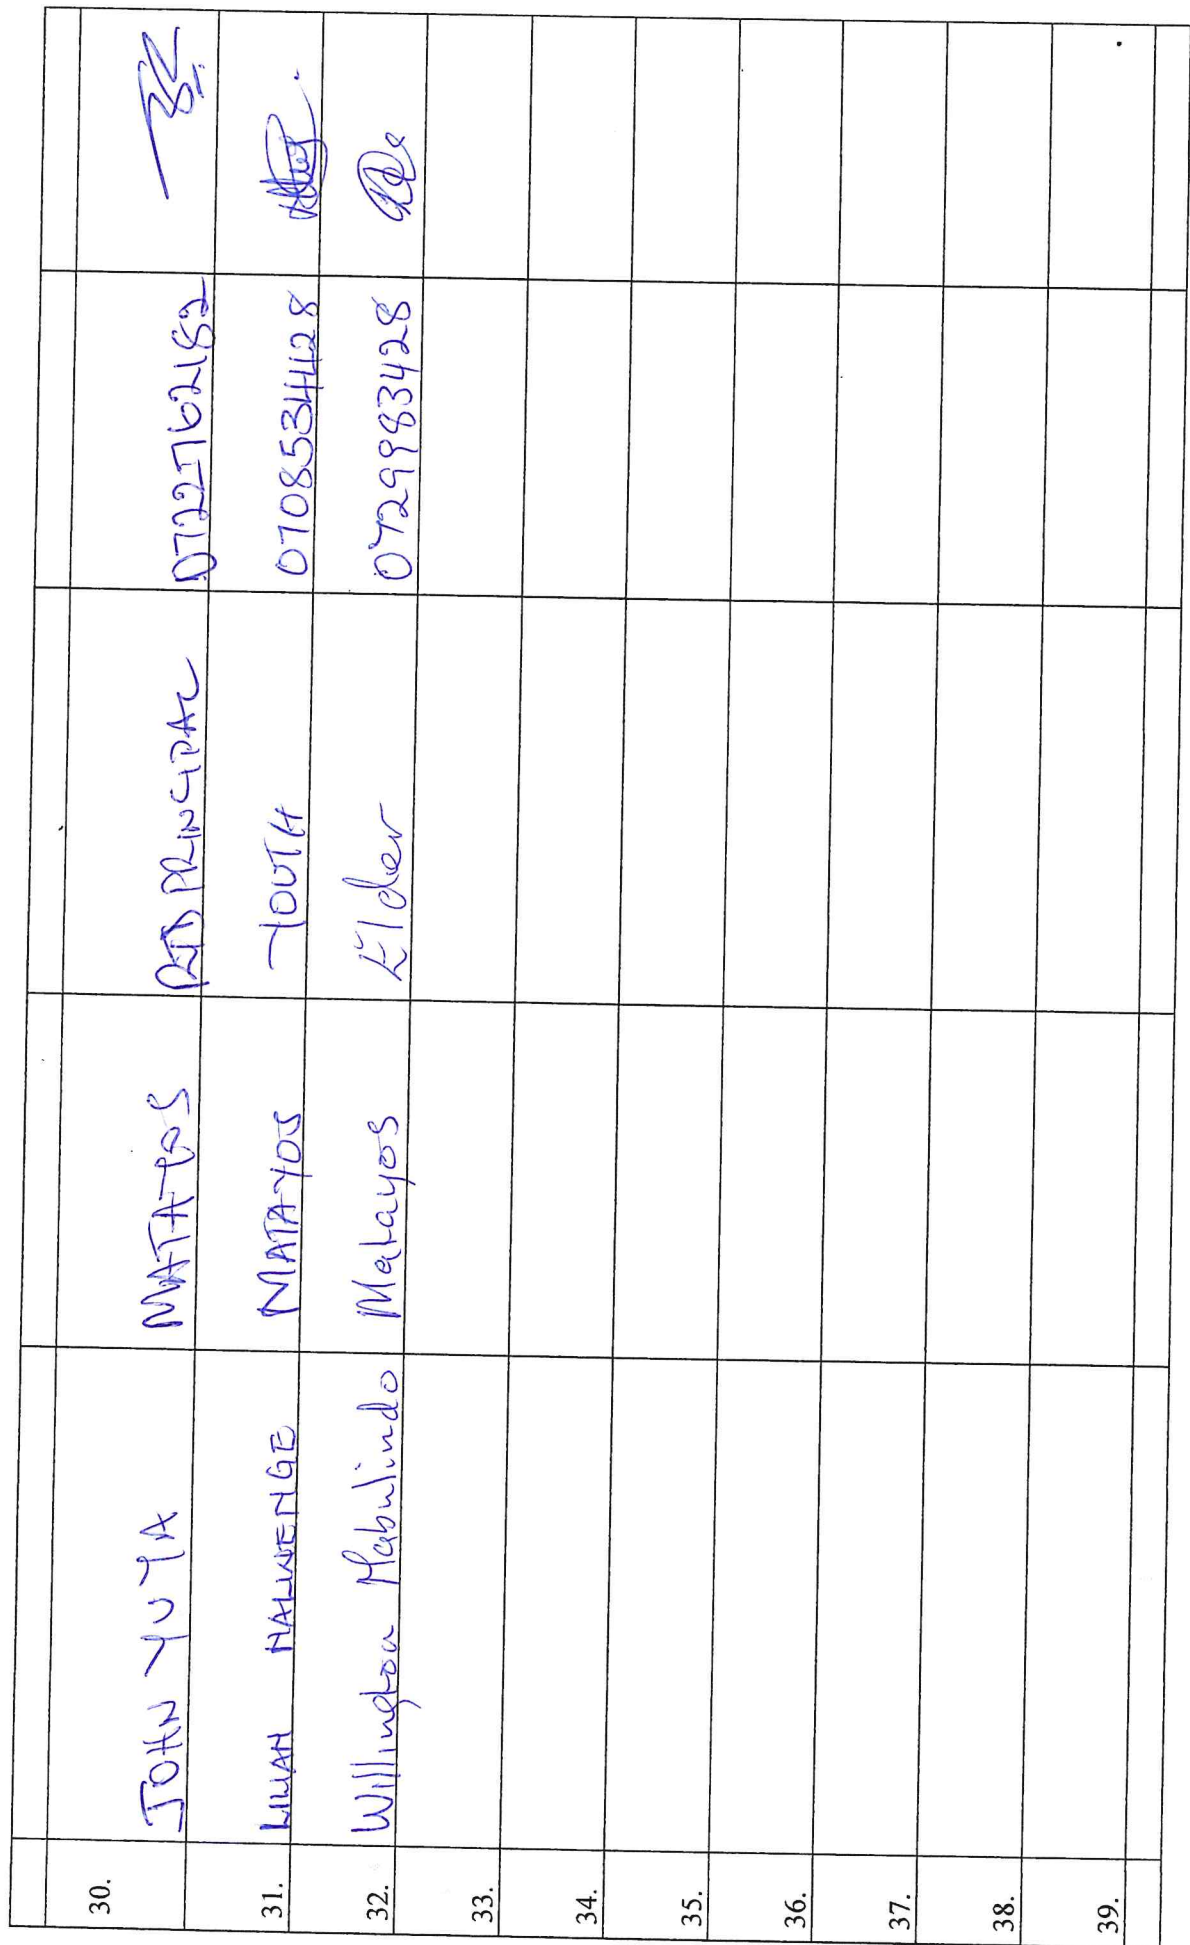 30. JOHN YUYA MATAYOS RTD PRINCIPAL 0722762182
31. LILIAN NALWENGE MATAYOS YOUTH 0708534428
32. Willington Mabulindo Matayos Elder 0729983428
33.
34.
35.
36.
37.
38.
39.